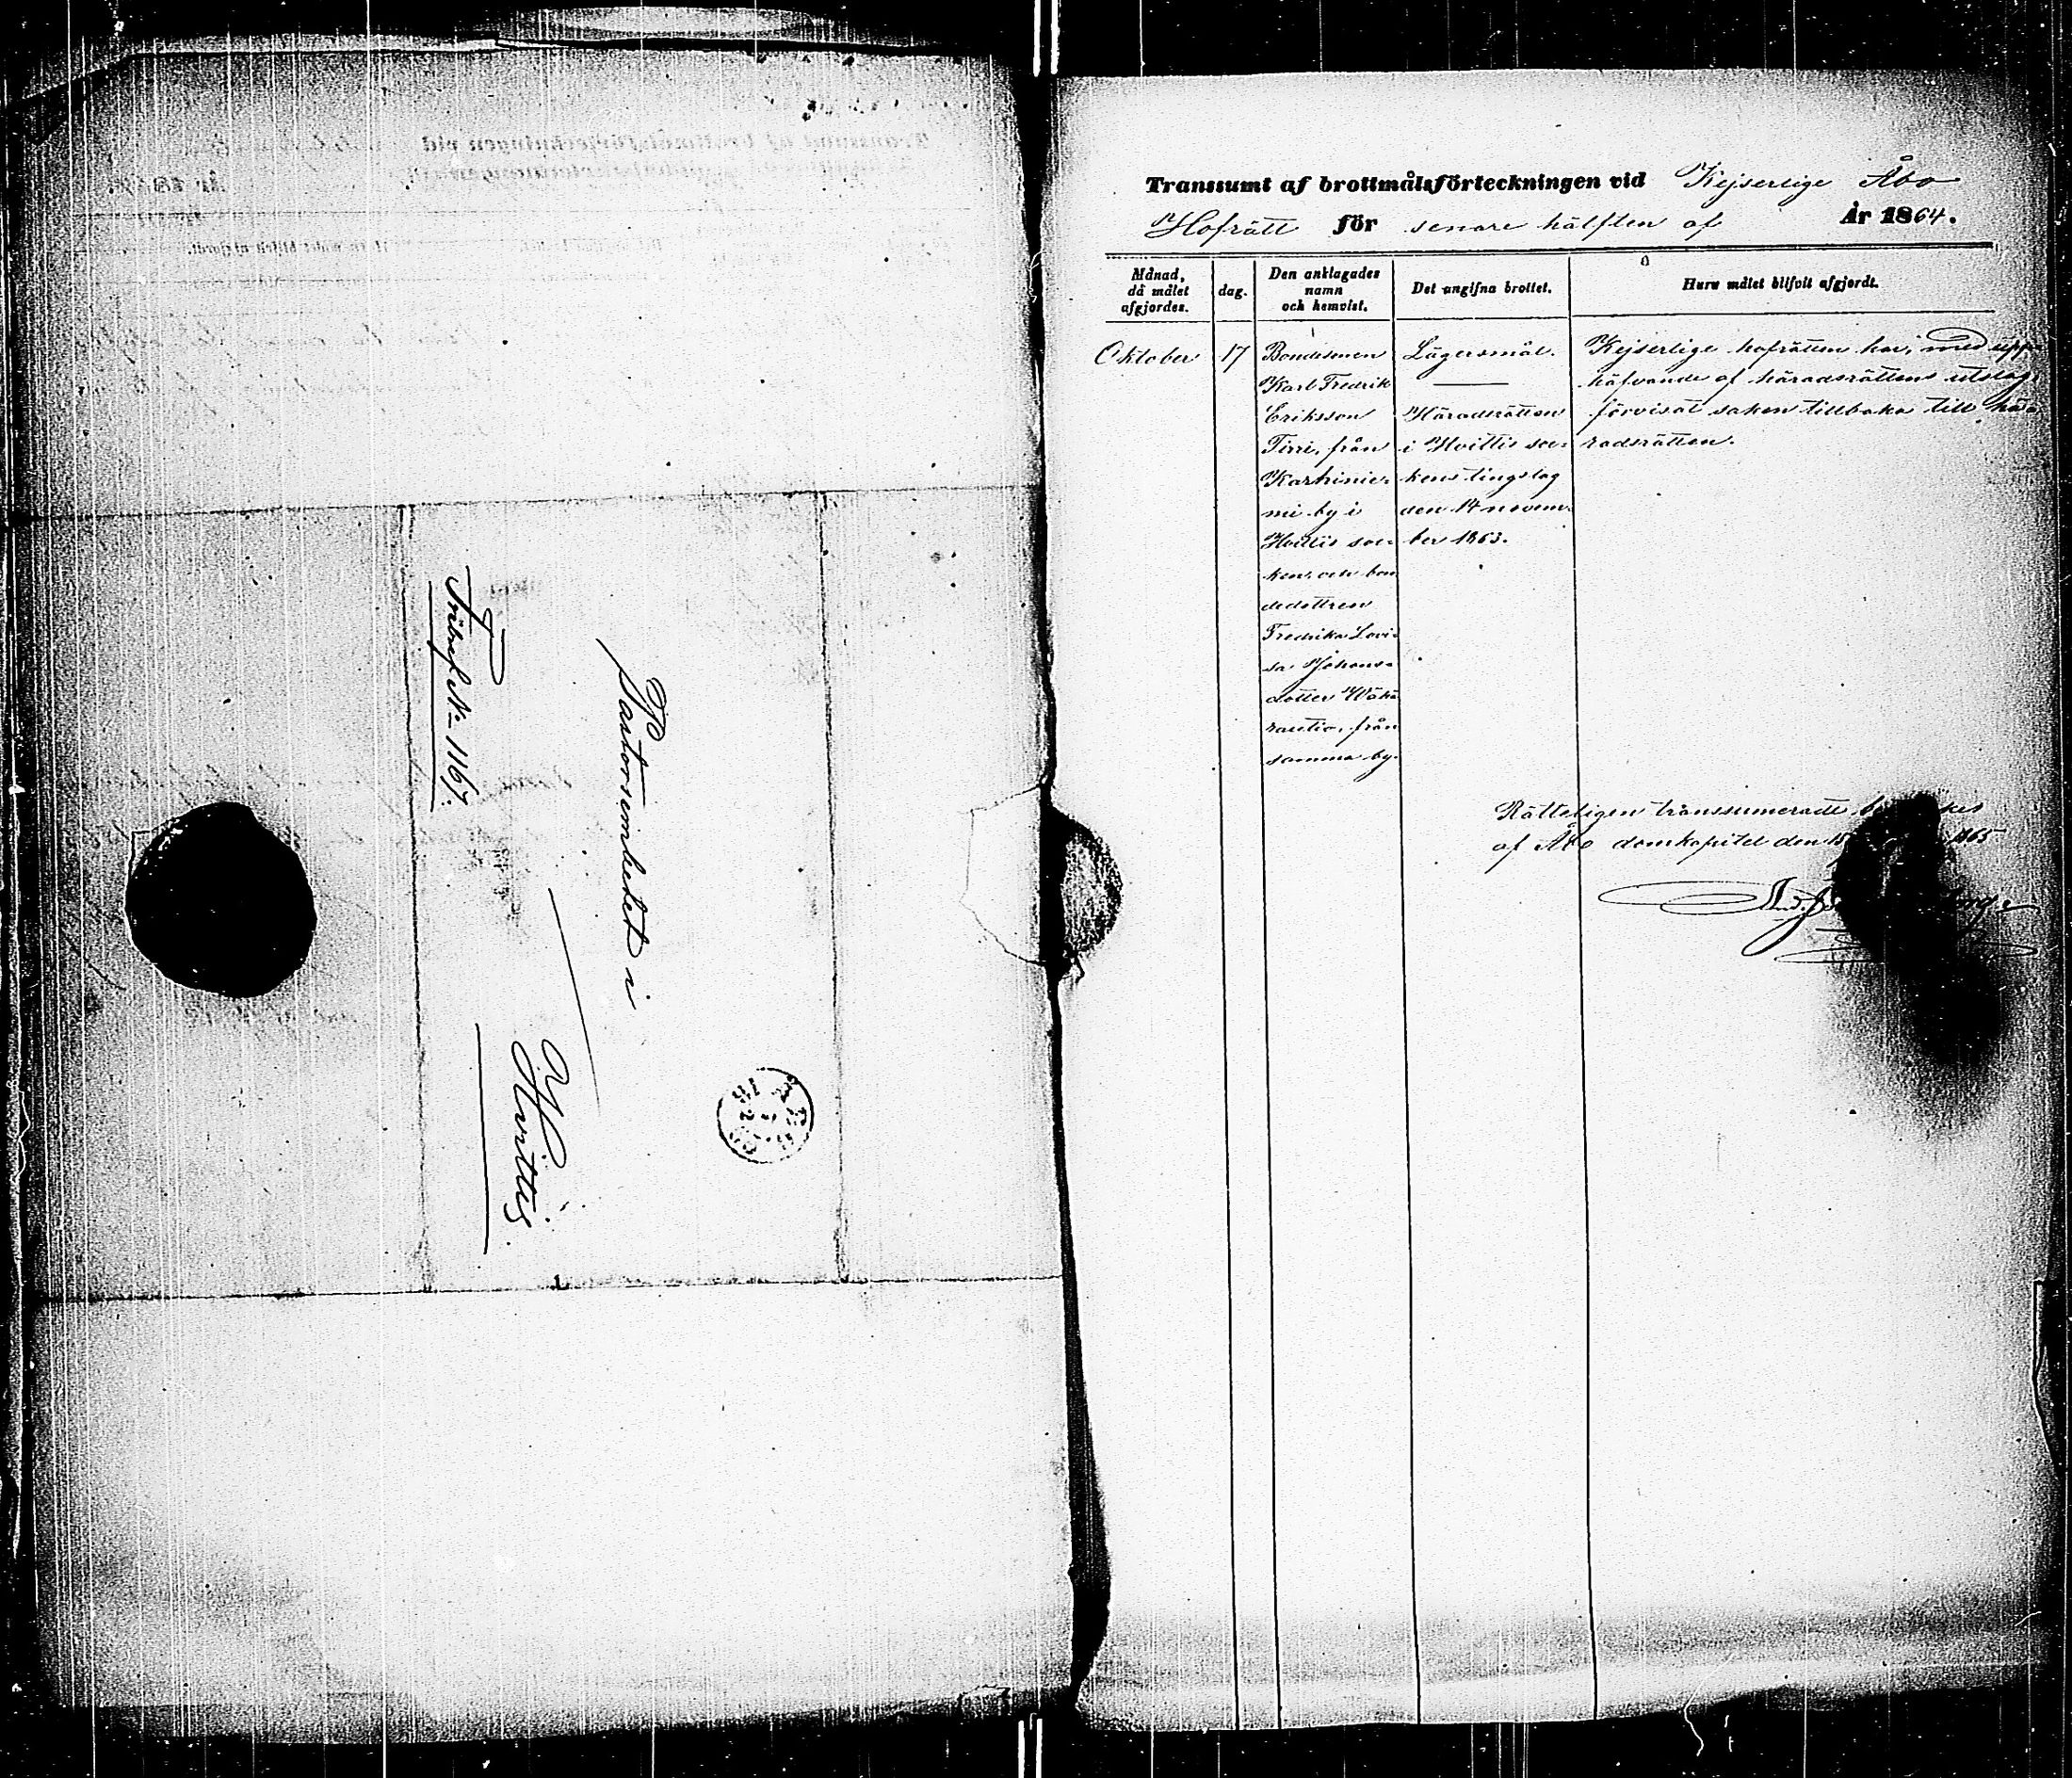 Pastorsembetet i
Hvittis.
Fribref No 1167.
Transsumt af brottmålsförteckningen vid Kejserlige Åbo
Hofrätt för senare hälften af År 1864.
Månad, då målet afgjordes.
dag.
Den anklagades namn och hemvist.
Det angifna brottet.
Huru målet blifvit afgjordt.
Oktober
17
Bondesonen
Karl Fredrik
Eriksson
Tirri, från
Karhinie-
mi by i
Hvittis soc-
ken, och bon
dedottren
Fredrika Lovi-
sa Johans-
dotter Wähä
rautio, från
samma by.
Lägersmål.
Häradsrätten
i Hvittis soc-
kens tingslag
den 14 novem-
ber 1863.
Kejserlige hofrätten har, med upp-
häfvande af häradsrättens utslag,
förvisat saken tillbaka till hä-
radsrätten.
Rätteligen transsumeradt
af Åbo domkapitel den 15 1865